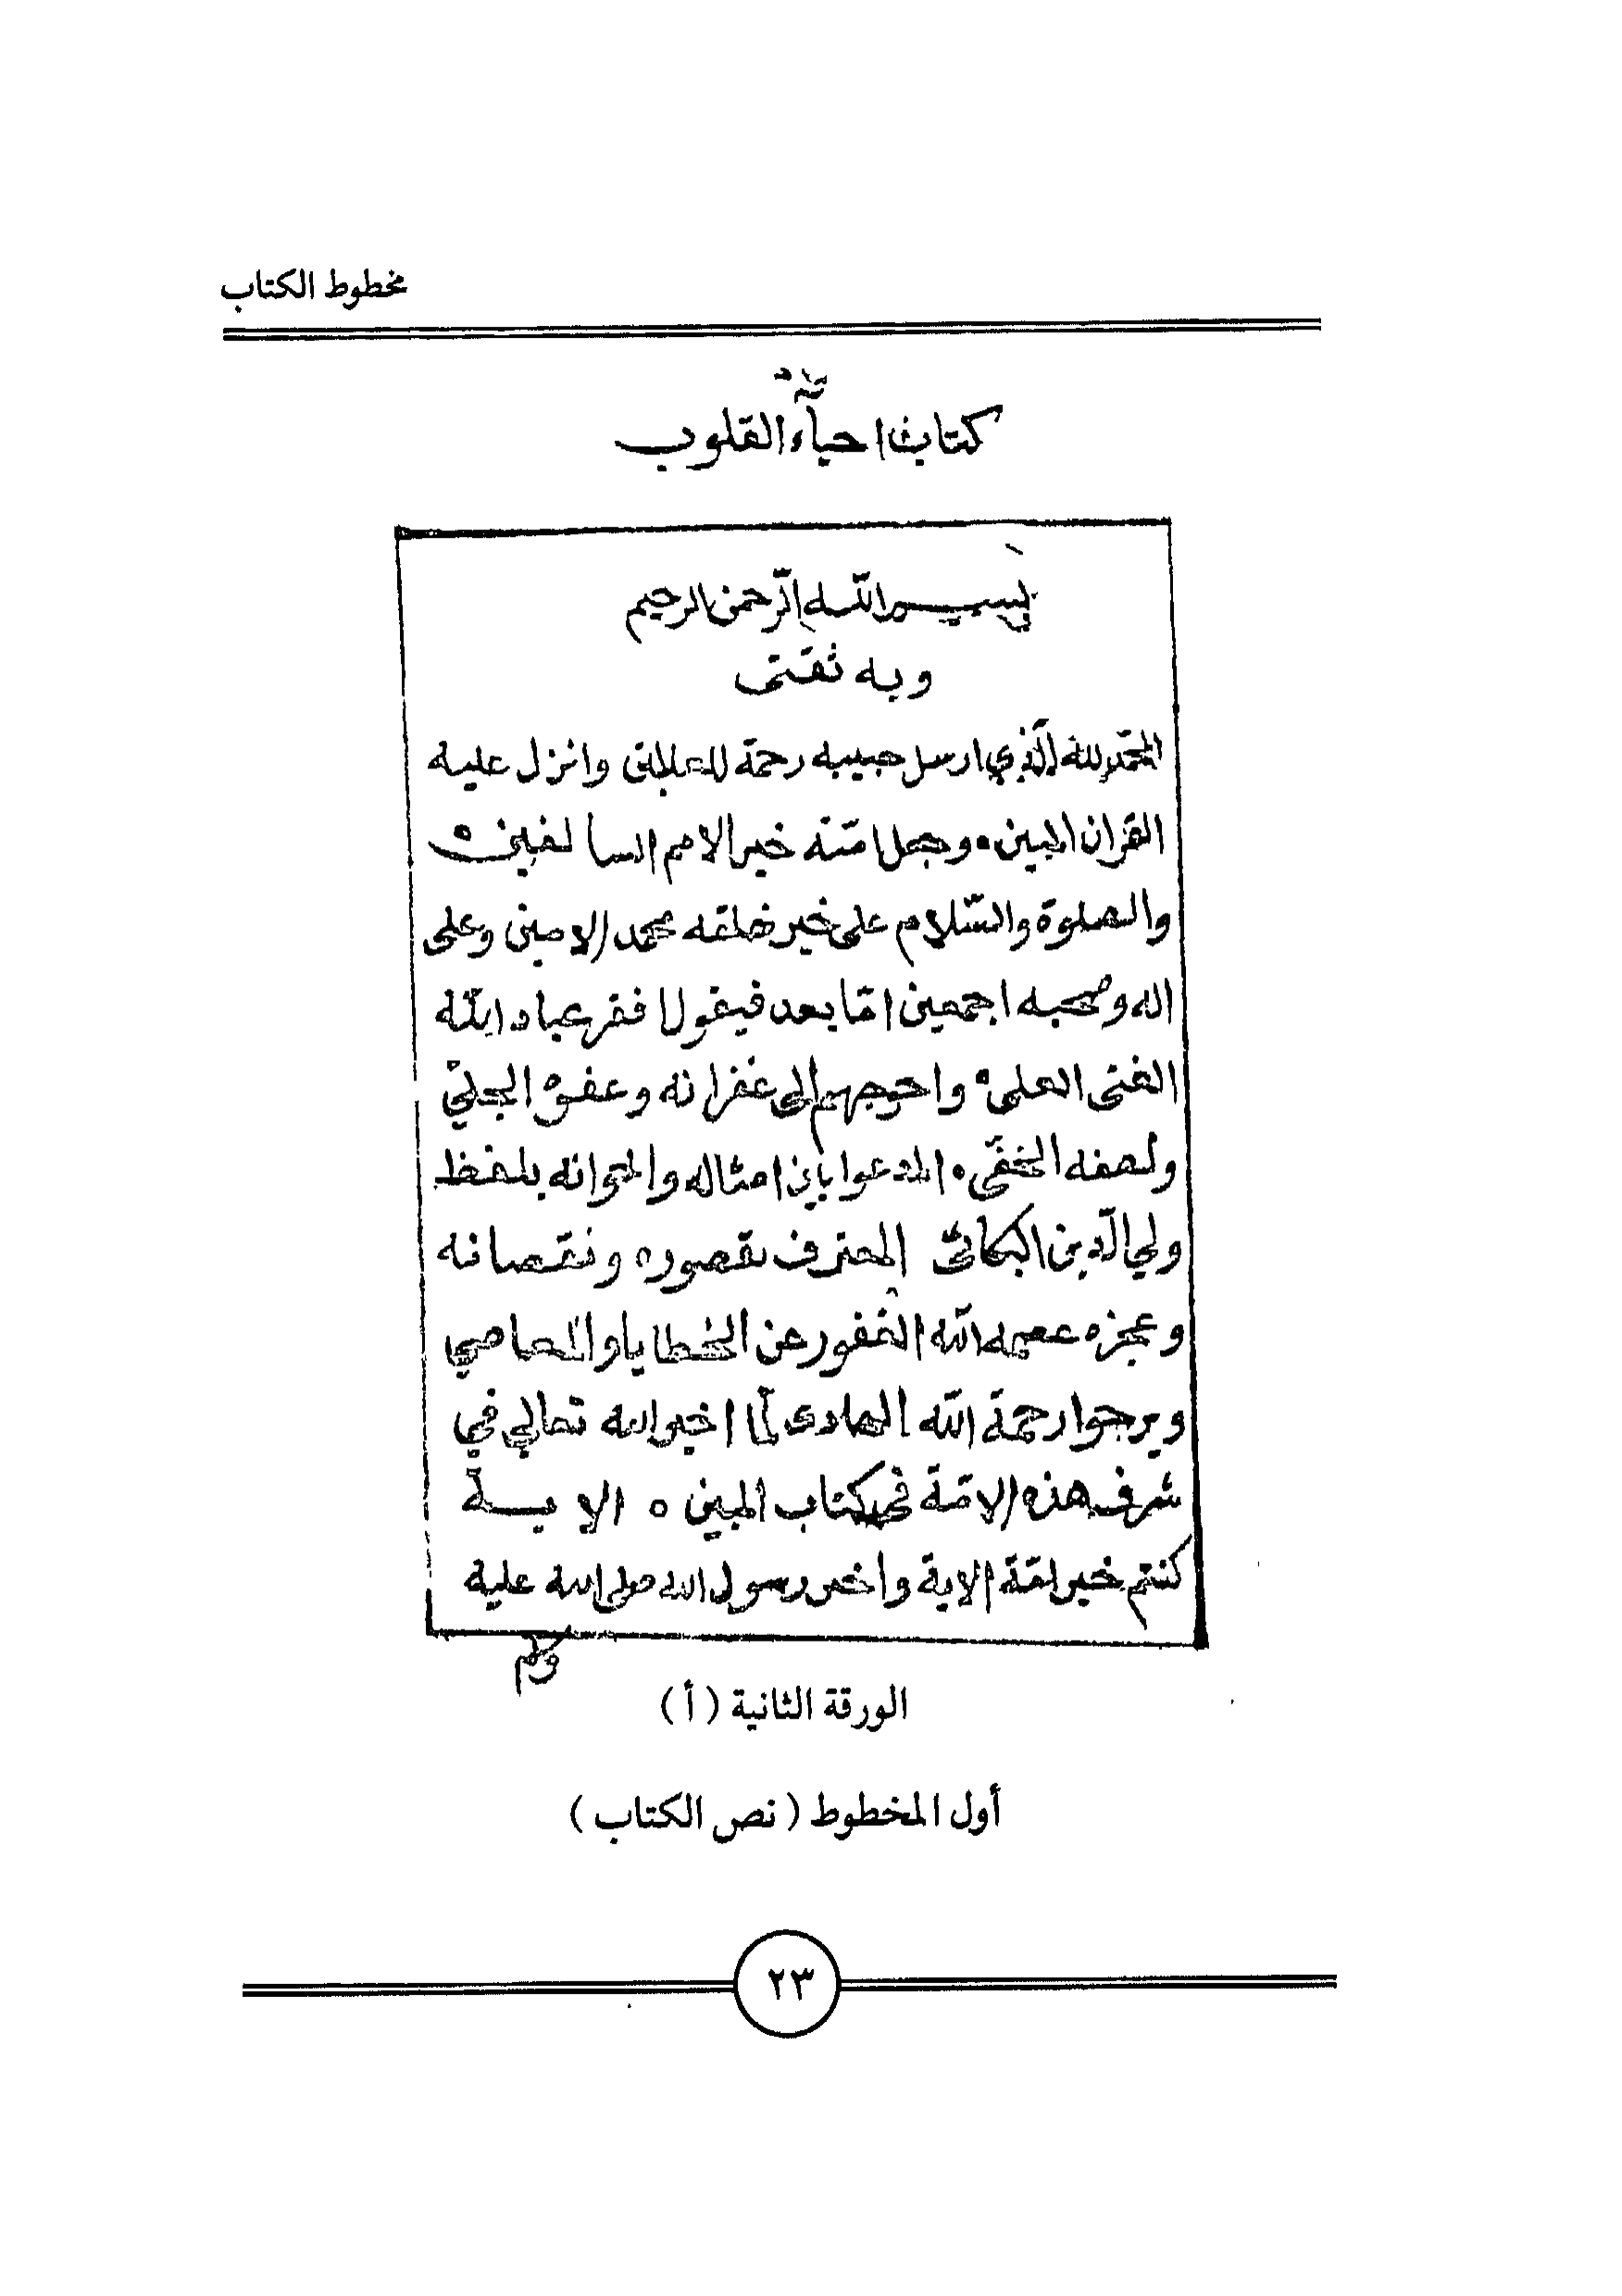 مخطوط الكتاب
كتاب احياء القلوب
بسم الله الرحمن الرحيم
وبه ثقتى
الحمد لله الذي ارسل حبيبه رحمة للعالمين وانزل عليه
القران المبين ۰ وجعل امته خير الامم السالفين ۰
والصلوة والسّلام على خير خلقه محمد الامين وعلى
اله وصحبه اجمعين امّا بعد فيقول افقر عباد الله
الغنى العلى ۰ واحوجهم الى غفرانه وعفوه الجليّ
ولطفه الخفى ۰ المدعوا بين امثاله واخوانه بلفظ
ولي الدّين البكائى المعترف بقصوره ونقصانه
وعجزه عصمه الله الغفور عن الخطايا والمعاصي
ويرجوا رحمة الله الهادى لمّا اخبر الله تعالي في
شرف هذه الامّة فى كتاب المبين ٥ الاية
كنتم خير امّة الاية واخبر رسول الله صلى الله عليه
وسلم
الورقة الثانية ( أ )
أول المخطوط ( نص الكتاب )
٢٣